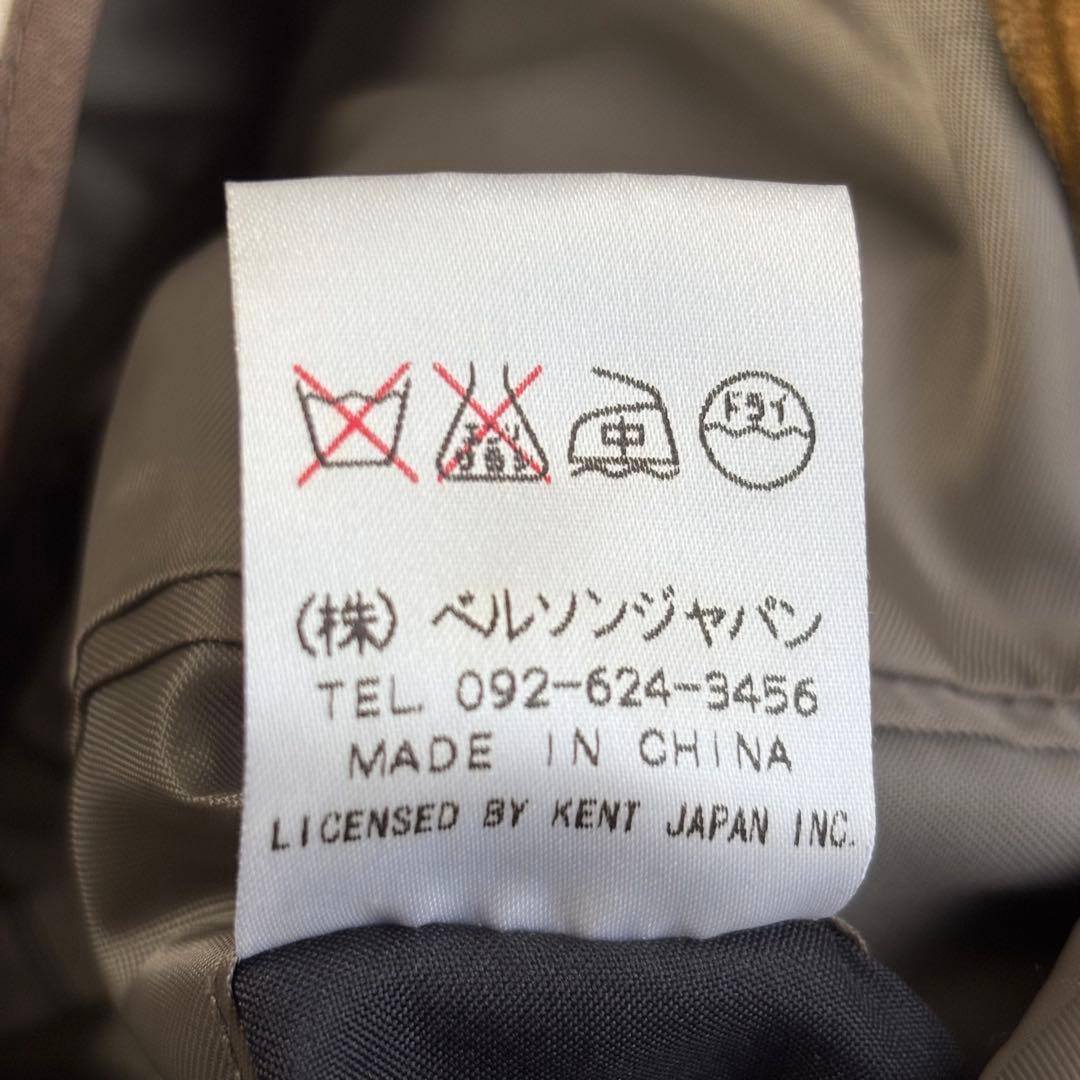 エンソ サラシ 中 ドライ
(株) ベルソンジャパン
TEL. 092-624-3456
MADE IN CHINA
LICENSED BY KENT JAPAN INC.